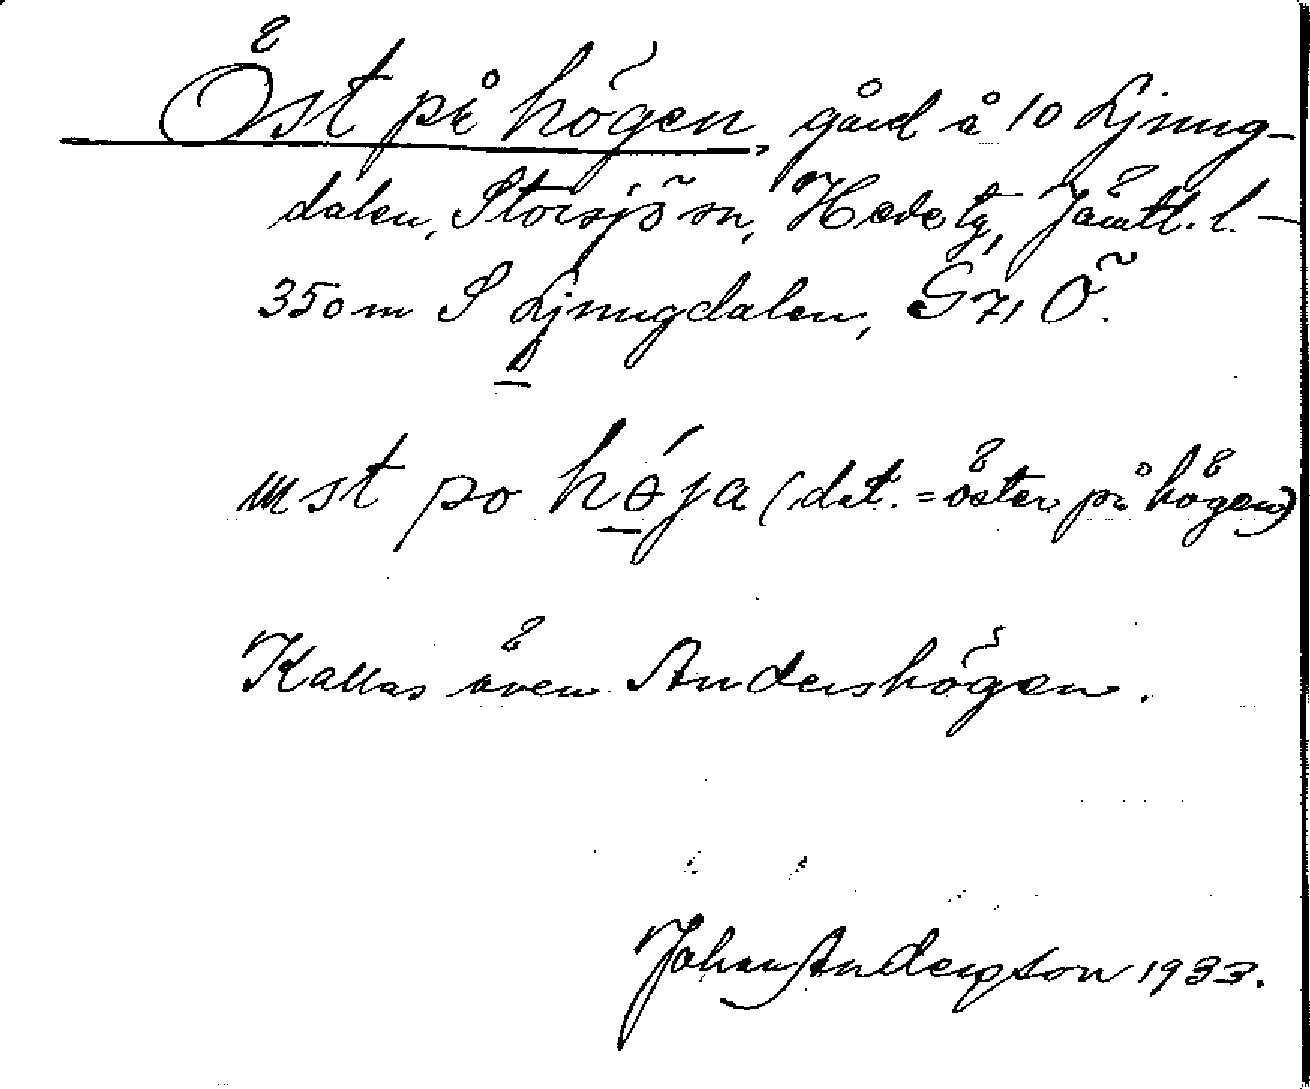 Öst på högen, gård å 10 Ljung-
dalen, Storsjö sn, Hede tg, Jämtl. l. —
350 m S Ljungdalen, G71 Ö.
po höja (det. = öster på högen)
Kallas även Andershögen.
Johan Anderson 1933.